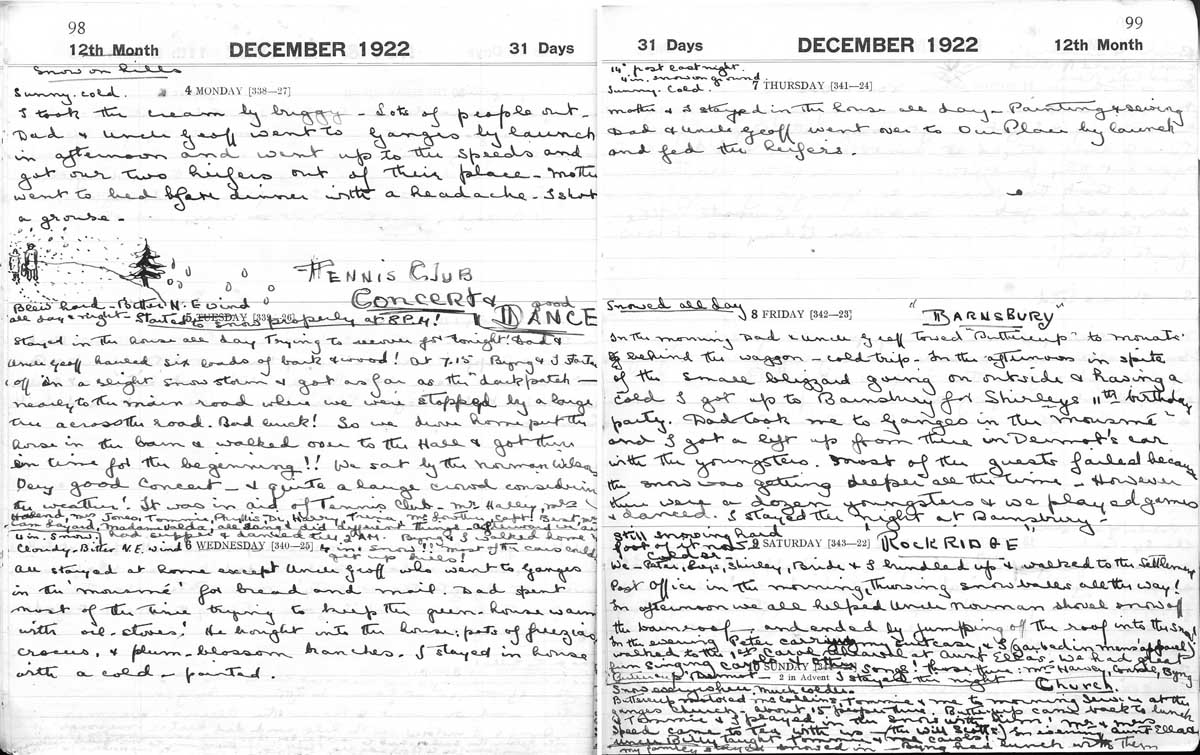 98
12th Month DECEMBER 1922 31 Days
Snow on hills
Sunny. cold. 4 MONDAY [338—27]
I took the cream by buggy - Lots of people out -
Dad & Uncle Geoff went to Ganges by launch
in afternoon and went up to the Speeds and
got our two heifers out of their place - Mother
went to bed before dinner with a headache - I shot
a grouse -
TENNIS CLUB
CONCERT &
good
DANCE
Blew hard - Bitter N.E wind
all day & night - Started to snow properly at 8 P.M!
5 TUESDAY [339—26]
Stayed in the house all day trying to recover for tonight! Dad &
Uncle Geoff hauled six loads of bark & wood! At 7.15 Byng & I started
off in a slight snow storm & got as far as the "dark patch" —
nearly to the main road when we were stopped by a large
tree across the road. Bad luck! So we drove home put the
horse in the barn & walked over to the Hall & got there
in time for the beginning!! We sat by the Norman Wilsons
Very good Concert - & quite a large crowd considering
the weather! It was in aid of Tennis Club. Mr Halley, Mrs
Jones, Tommie, Phyllis, Di,
all sang & did different things
had supper & danced till 2 AM. Byng & I walked home
4 in. Snow.
Cloudy. Bitter N.E. wind 6 WEDNESDAY [340—25] 4 in. snow!! Most of the cars could
All stayed at home except Uncle Geoff who went to Ganges
in the "mourmé" for bread and mail. Dad spent
most of the time trying to keep the green-house warm
with oil-stoves! He brought into the house: pots of freezias,
crocus, & plum-blossom branches. I stayed in house
with a cold - painted.
99
31 Days DECEMBER 1922 12th Month
14° frost last night.
4 in. snow on ground.
Sunny. Cold. 7 THURSDAY [341—24]
Mother & I stayed in the house all day - Painting & sewing
Dad & Uncle Geoff went over to Our Place by launch
and fed the heifers.
Snowed all day 8 FRIDAY [342—23] "BARNSBURY"
In the morning Dad & Uncle Geoff towed "Buttercup" to Mouat's
behind the waggon - cold trip - In the afternoon in spite
of the small blizzard going on outside & having a
cold I got up to Barnsbury for Shirley's 11th birthday
party. Dad took me to Ganges in the "mourmé"
and I got a left up from there in Dermot's car
with the youngsters. Most of the guests failed because
the snow was getting deeper all the time - However
there were a dozen youngsters & we played games
& danced. I stayed the night at Barnsbury -
Still snowing hard
9 SATURDAY [343—22] "ROCKRIDGE"
Colder
We - Peter, Rup, Shirley, Binde & I bundled up & walked to the Settlement
Post Office in the morning, throwing snowballs all the way!
In afternoon we all helped Uncle Norman shovel snow off
the barn roof - and ended by jumping off the roof into the snow
In the evening Peter carrying my suitcase, & I (garbed in men's apparel)
walked to the 1st Carol Rehearsal at Aunt Ella's. We had great
fun singing carols & other songs! Those there: Mr Harvey, Connie, Byng
Buttercup, Dermot - I stayed the night
10 SUNDAY 2 in Advent Church.
Snow everywhere. Much colder.
Buttercup motored Mrs Collins, Tommie & me to morning Service at the
Ganges Church, about 15 people there. Buttercup came back to lunch
& Tommie & I played in the snow with him! Mr & Mrs
Speed came to tea with us - (The Will Scotts) In evening Aunt Ella
My family stayed snowed in - Byng had lunch with them